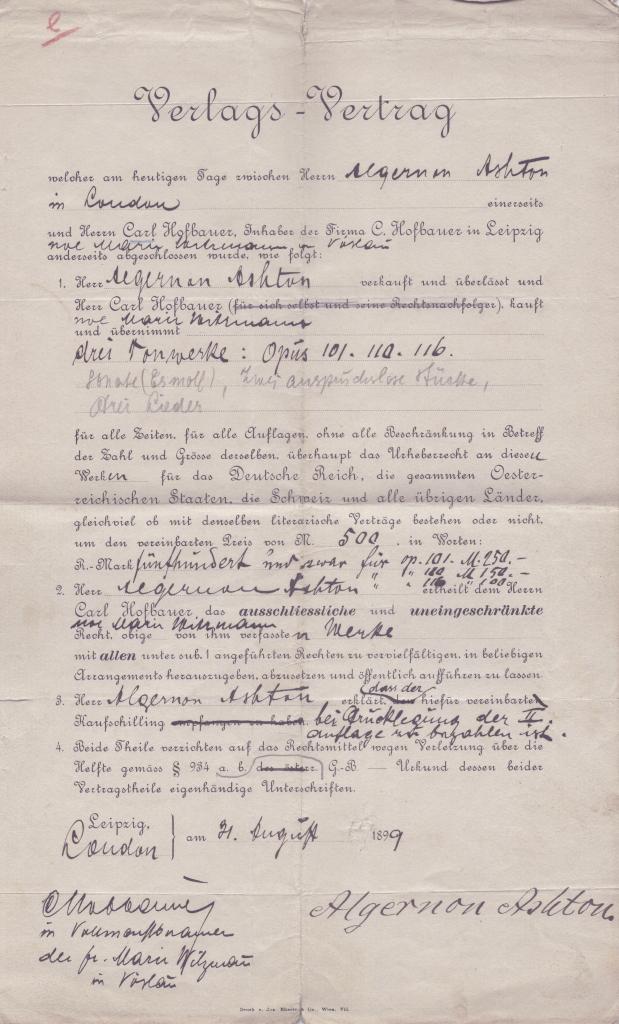 Verlags-Vertrag
welcher am heutigen Tage zwischen Herrn Algernon Ashton
in London einerseits
und Herrn Carl Hofbauer, Inhaber der Firma C. Hofbauer in Leipzig
noe Marie Witzmann in Vöslau
anderseits abgeschlossen wurde, wie folgt:
1. Herr Algernon Ashton verkauft und überlässt und
Herr Carl Hofbauer (für sich selbst und seine Rechtsnachfolger), kauft
noe Marie Witzmann
und übernimmt
drei Tonwerke: Opus 101. 110. 116.
Sonate (Esmoll), Zwei anspruchslose Stücke,
Drei Lieder
für alle Zeiten, für alle Auflagen, ohne alle Beschränkung in Betreff
der Zahl und Grösse derselben, überhaupt das Urheberrecht an diesen
Werken für das Deutsche Reich, die gesammten Oester-
reichischen Staaten, die Schweiz und alle übrigen Länder,
gleichviel ob mit denselben literarische Verträge bestehen oder nicht,
um den vereinbarten Preis von M. 500, in Worten:
R.-Mark fünfhundert und zwar für op. 101. M. 250.-
" 110 M 150.-
" 116 " 100.-
2. Herr Algernon Ashton ertheilt dem Herrn
Carl Hofbauer das ausschliessliche und uneingeschränkte
noe Marie Witzmann
Recht, obige von ihm verfassten Werke
mit allen unter sub. 1 angeführten Rechten zu vervielfältigen, in beliebigen
Arrangements herauszugeben, abzusetzen und öffentlich aufführen zu lassen.
3. Herr Algernon Ashton erklärt, dass der hiefür vereinbarte
Kaufschilling empfangen zu haben. bei Drucklegung der II.
Auflage zu bezahlen ist.
4. Beide Theile verzichten auf das Rechtsmittel wegen Verletzung über die
Helfte gemäss § 934 a. b. des österr. G.-B. — Urkund dessen beider
Vertragstheile eigenhändige Unterschriften.
Leipzig,
London } am 31. August 1899
CHofbauer
in Vollmachtsnamen
der fr. Marie Witzmann
in Vöslau
Algernon Ashton.